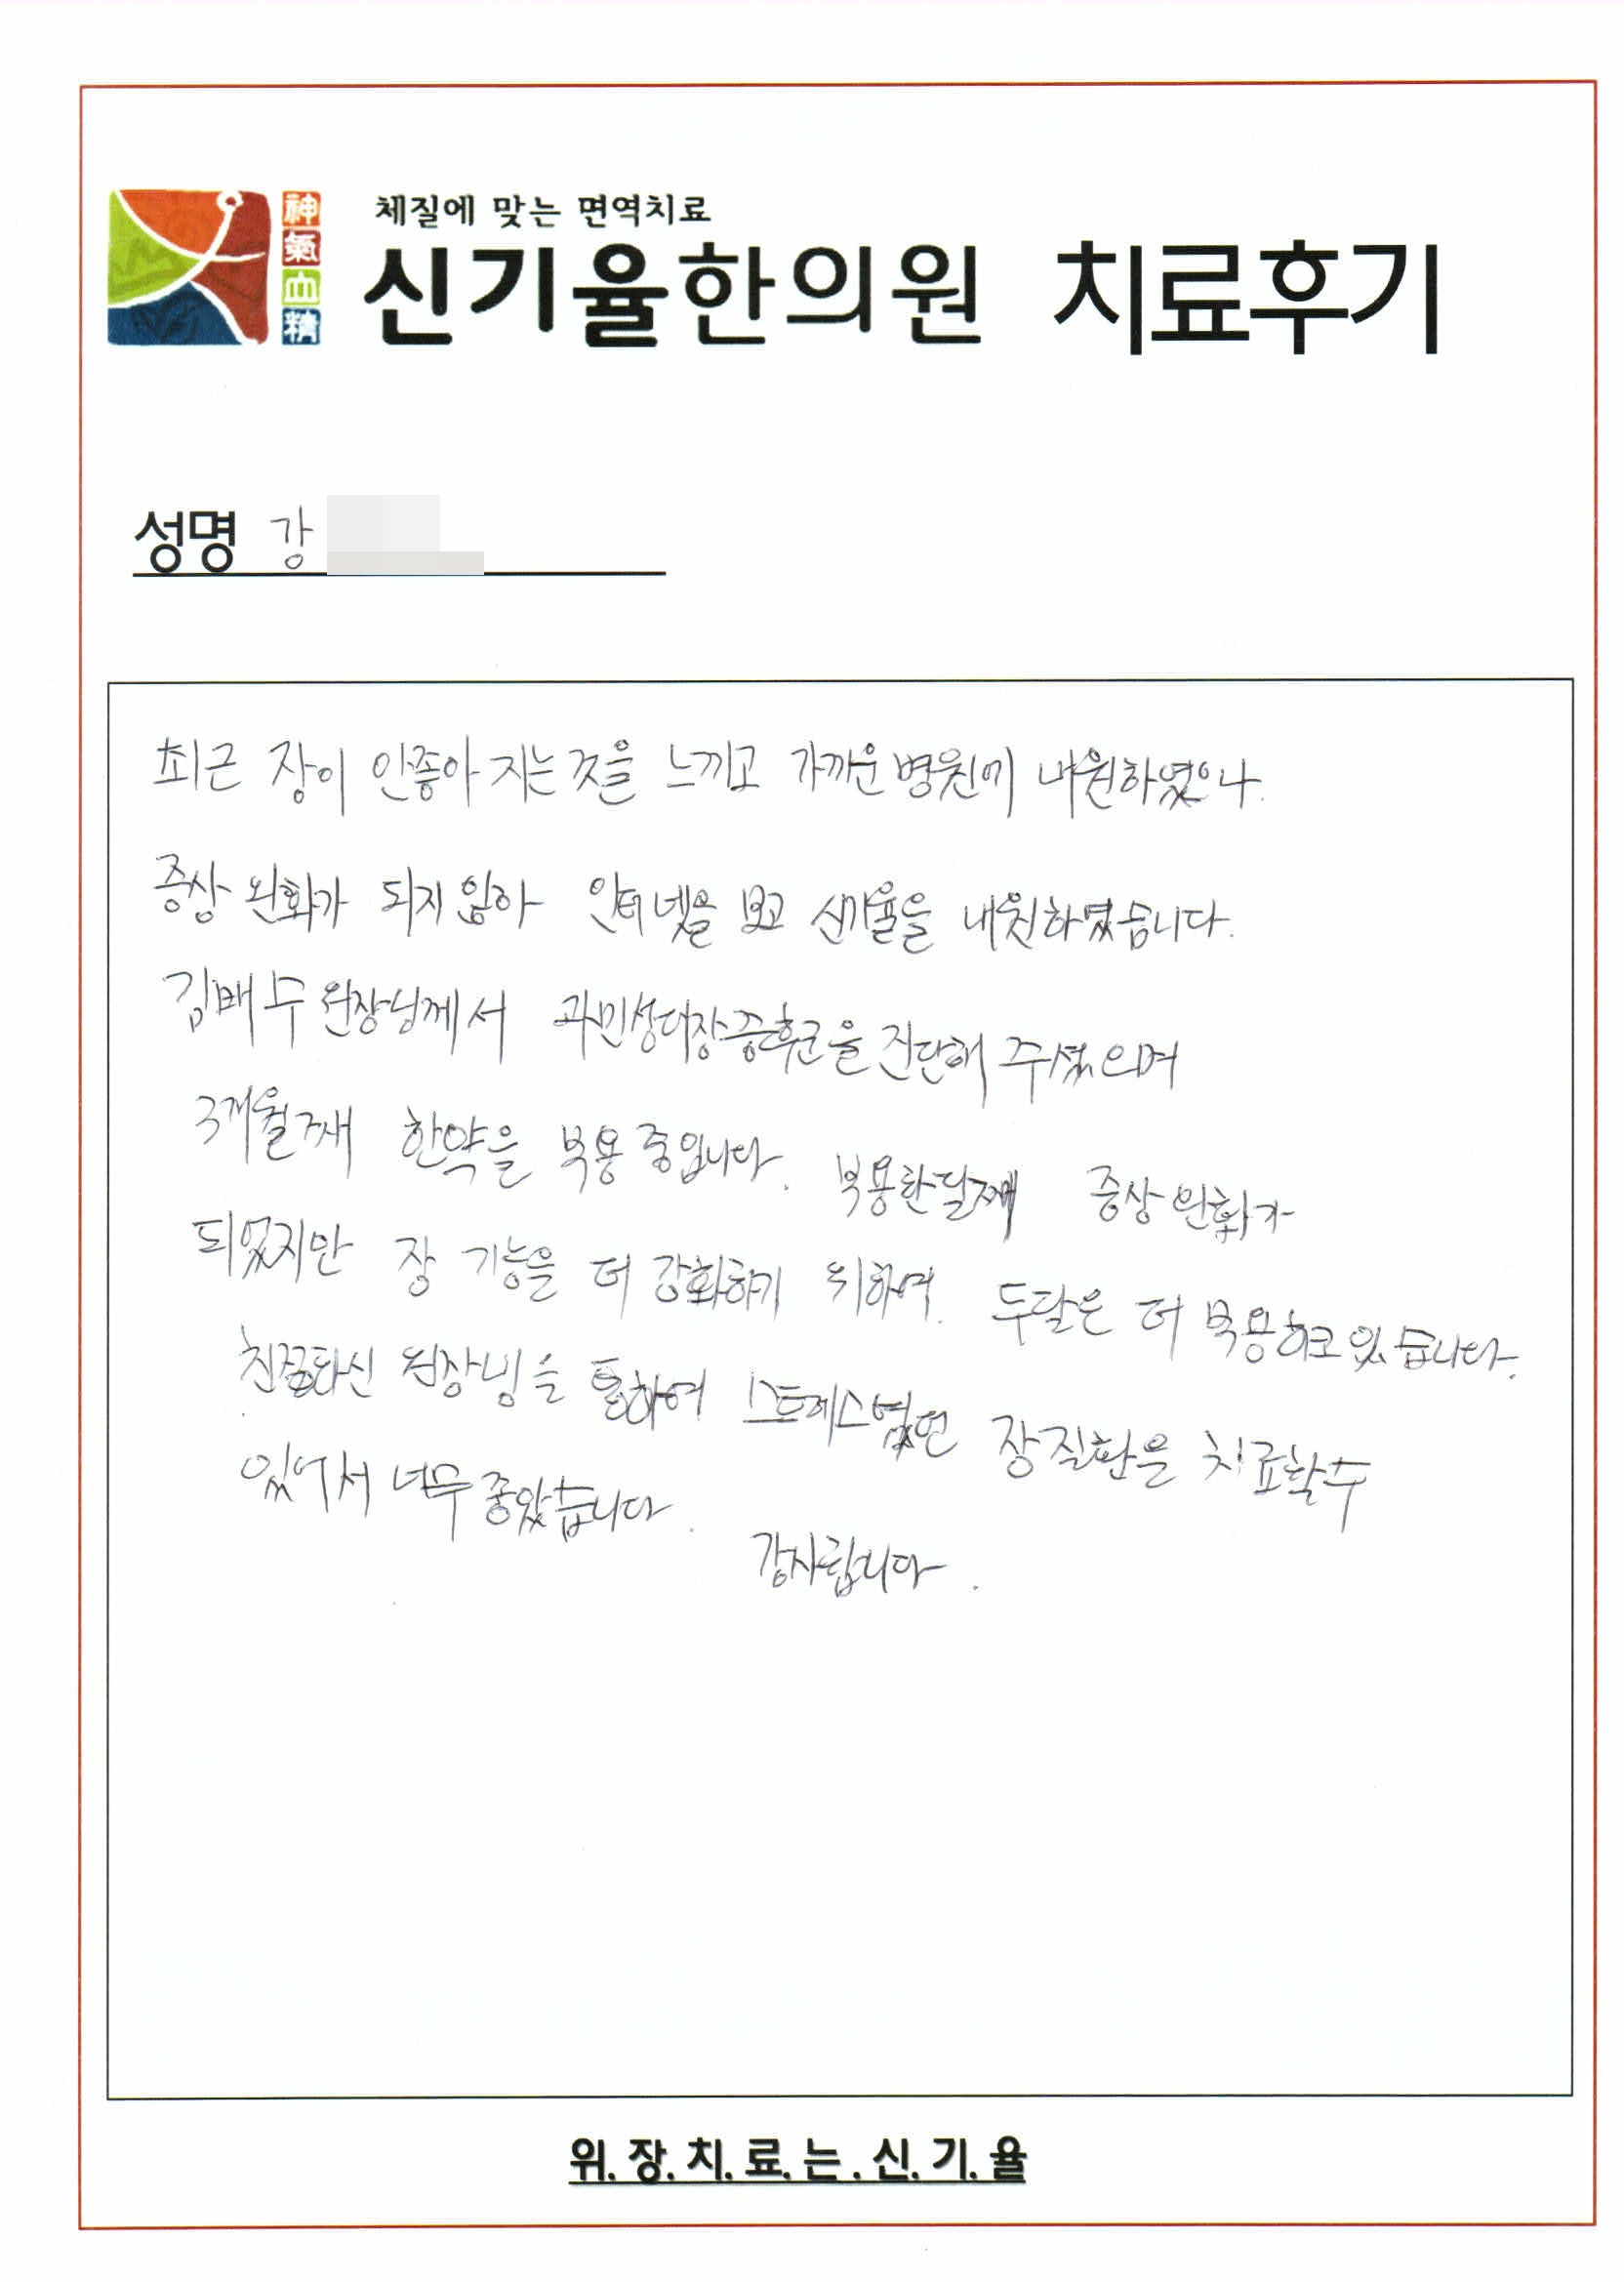 체질에 맞는 면역치료
神氣血精
신기율한의원 치료후기
성명 강
최근 장이 안좋아 지는것을 느끼고 가까운 병원에 내원하였으나.
증상 완화가 되지 않아 인터넷을 보고 신기율을 내원하였습니다.
김배수 원장님께서 과민성대장증후군을 진단해 주셨으며
3개월째 한약을 복용중입니다. 복용한달째 증상완화가
되었지만 장 기능을 더 강화하기 위하여. 두달은 더 복용하고 있습니다.
친절하신 원장님을 통하여 스트레스였던 장질환을 치료할수
있어서 너무 좋았습니다.
감사합니다.
위.장.치.료.는.신.기.율